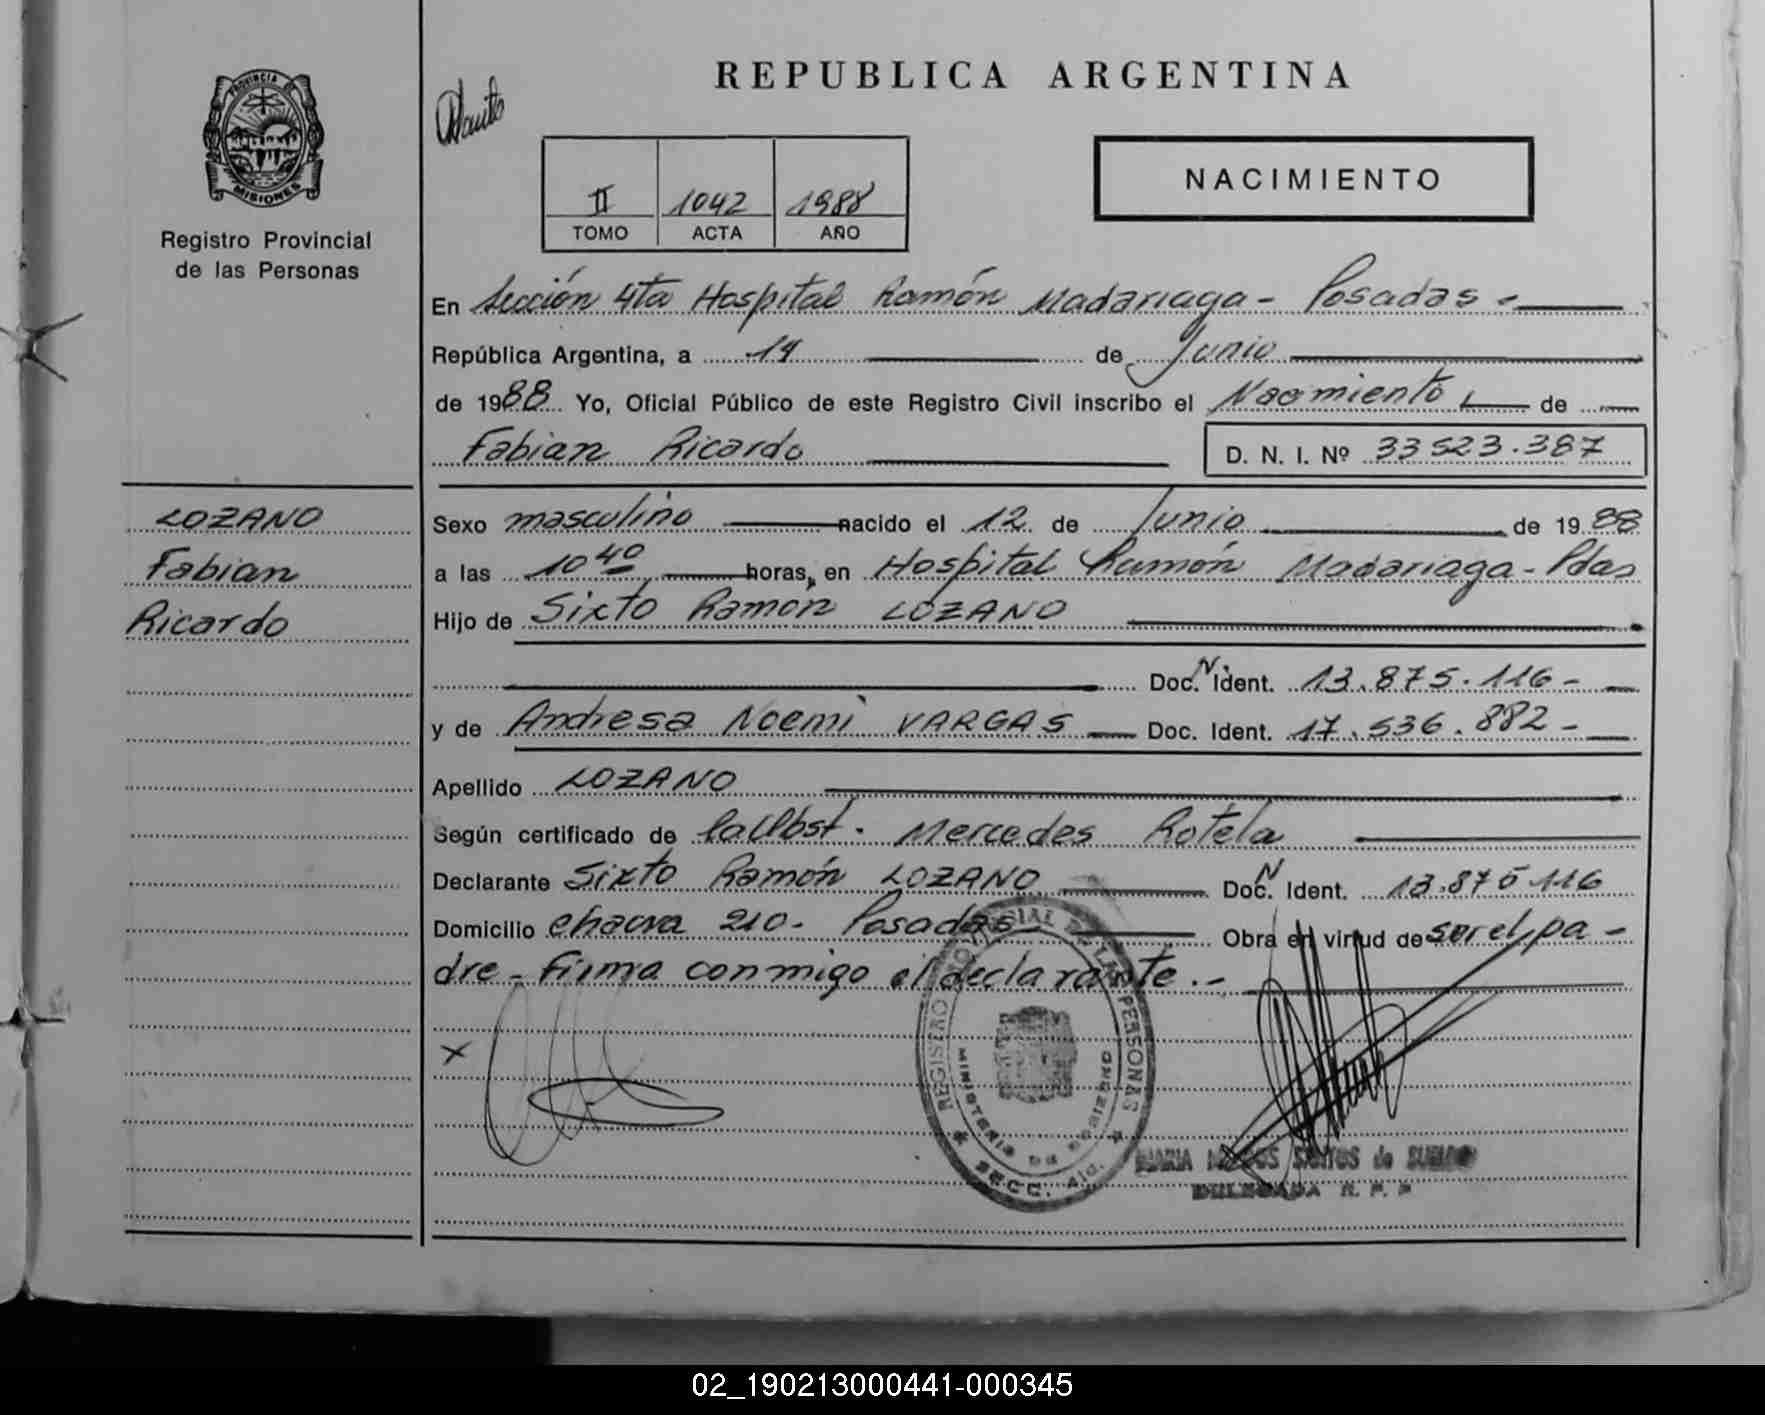 REPUBLICA ARGENTINA
PROVINCIA DE
MISIONES
Registro Provincial
de las Personas
NACIMIENTO
II 1042 1988
TOMO ACTA AÑO
En Sección 4ta Hospital Ramón Madariaga - Posadas -
República Argentina, a 14 de Junio
de 1988 Yo, Oficial Público de este Registro Civil inscribo el Nacimiento de
Fabian Ricardo D. N. I. Nº 33523.387
LOZANO
Fabian
Ricardo
Sexo masculino nacido el 12 de Junio de 1988
a las 10 40 horas, en Hospital Ramón Madariaga - Pdas
Hijo de Sixto Ramón LOZANO
Doc. N. Ident. 13.875.116 -
y de Andresa Noemi VARGAS Doc. Ident. 17.536.882 -
Apellido LOZANO
Según certificado de Mercedes Rotela
Declarante Sixto Ramón LOZANO Doc. N Ident. 13.875 116
Domicilio 210 - Posadas Obra en virtud de ser el pa -
dre - Firma conmigo el declarante . -
x
REGISTRO PROVINCIAL DE LAS PERSONAS
MINISTERIO DE GOBIERNO
SECC. 4ta.
MARIA SANTOS de
DELEGADA R. P. P
02_190213000441-000345